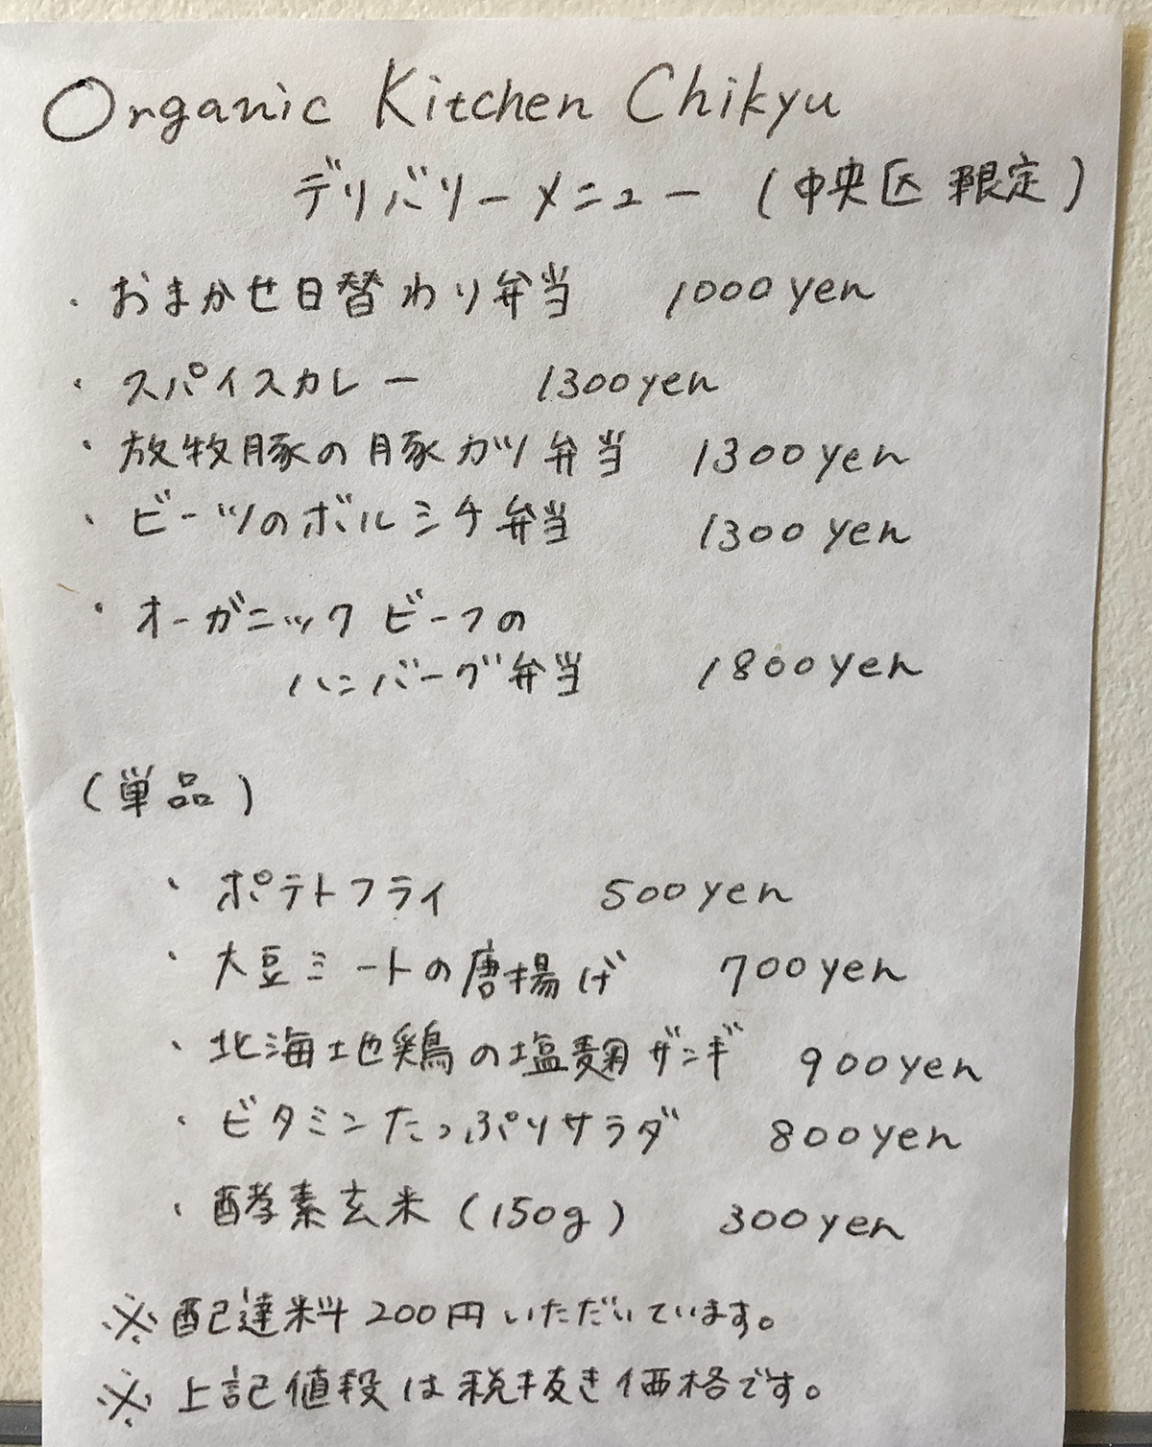 Organic Kitchen Chikyu
デリバリーメニュー (中央区限定)
・おまかせ日替わり弁当 1000yen
・スパイスカレー 1300yen
・放牧豚の豚カツ弁当 1300yen
・ビーツのボルシチ弁当 1300yen
・オーガニックビーフの
ハンバーグ弁当 1800yen
(単品)
・ポテトフライ 500yen
・大豆ミートの唐揚げ 700yen
・北海地鶏の塩麹ザンギ 900yen
・ビタミンたっぷりサラダ 800yen
・酵素玄米(150g) 300yen
※配達料200円いただいています。
※上記値段は税抜き価格です。